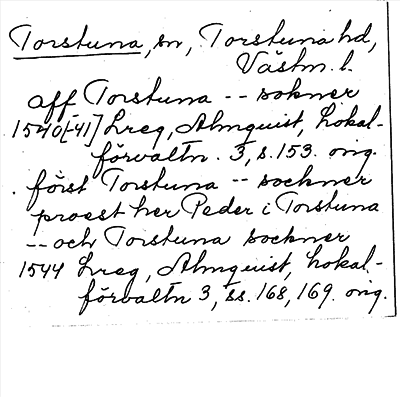 Torstuna, sn, Torstuna hd,
Västm. l.
aff Torstuna -- sokner
1540[-41] Lreg, Almquist, Lokal-
förvaltn. 3, s. 153. orig.
. först Torstuna -- sockner
proest her Peder i Torstuna
-- och Torstuna sockner
1544 Lreg, Almquist, Lokal-
förvaltn 3, ss. 168, 169. orig.